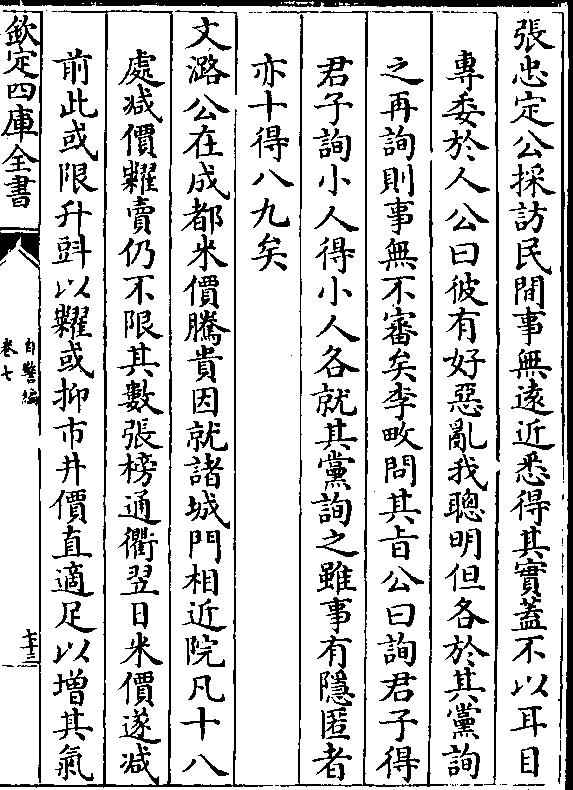 張忠定公採訪民間事無逺近悉得其實蓋不以耳目
専委於人公曰彼有好惡亂我聰明但各於其黨詢
之再詢則事無不審矣李畋問其㫖公曰詢君子得
君子詢小人得小人各就其黨詢之雖事有隠匿者
亦十得八九矣
文潞公在成都米價騰貴因就諸城門相近院凡十八
處减價糶賣仍不限其數張榜通衢翌日米價遂减
前此或限升㪷以糶或抑市井價直適足以増其氣
欽定四庫全書
自警編
卷七
七十三